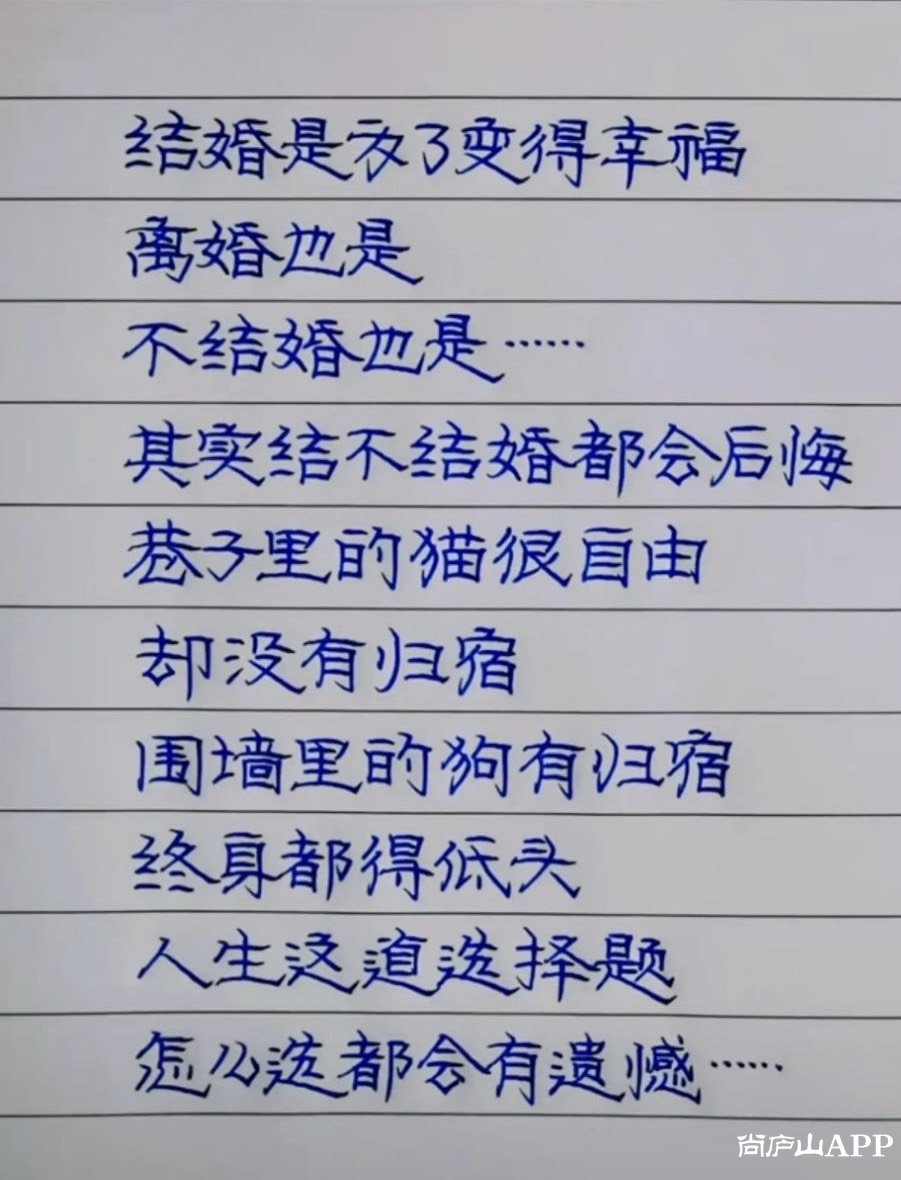 结婚是为了变得幸福
离婚也是
不结婚也是……
其实结不结婚都会后悔
巷子里的猫很自由
却没有归宿
围墙里的狗有归宿
终身都得低头
人生这道选择题
怎么选都会有遗憾……
尚庐山APP